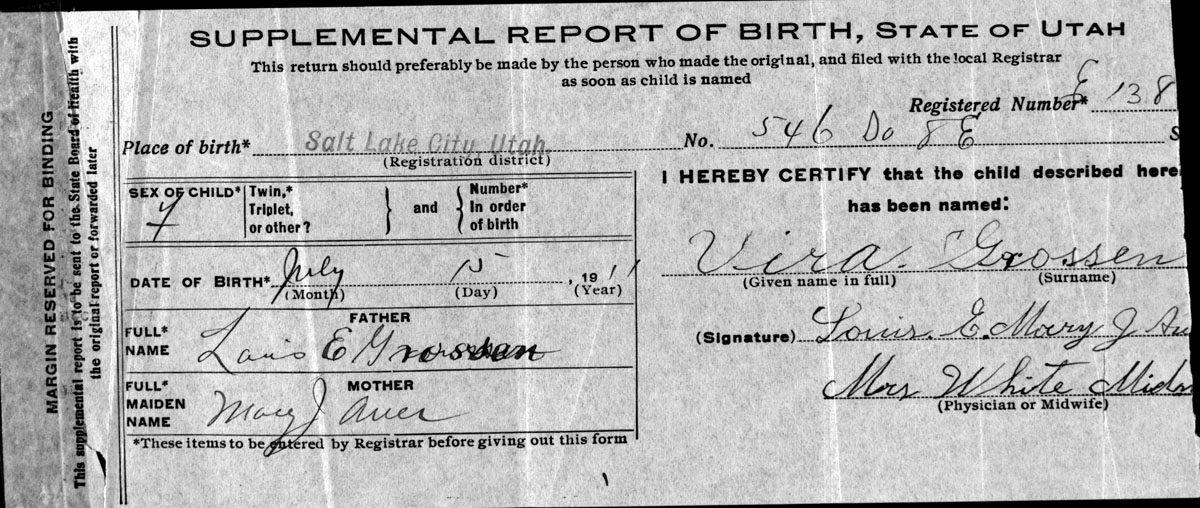 SUPPLEMENTAL REPORT OF BIRTH, STATE OF UTAH
This return should preferably be made by the person who made the original, and filed with the local Registrar
as soon as child is named
Registered Number* E 138
Place of birth* Salt Lake City, Utah.
(Registration district)
No. 546 Do 8 E S
SEX OF CHILD* F
Twin,*
Triplet,
or other?
and
Number*
In order
of birth
DATE OF BIRTH* July 15, 1911
(Month) (Day) (Year)
FATHER
FULL*
NAME Louis E Grossen
MOTHER
FULL*
MAIDEN
NAME Mary J Auer
*These items to be entered by Registrar before giving out this form
I HEREBY CERTIFY that the child described here
has been named:
Vira. Grossen
(Given name in full) (Surname)
(Signature) Louis. E. Mary J Au
Mrs White Midw
(Physician or Midwife)
MARGIN RESERVED FOR BINDING
This supplemental report is to be sent to the State Board of Health with
the original report or forwarded later